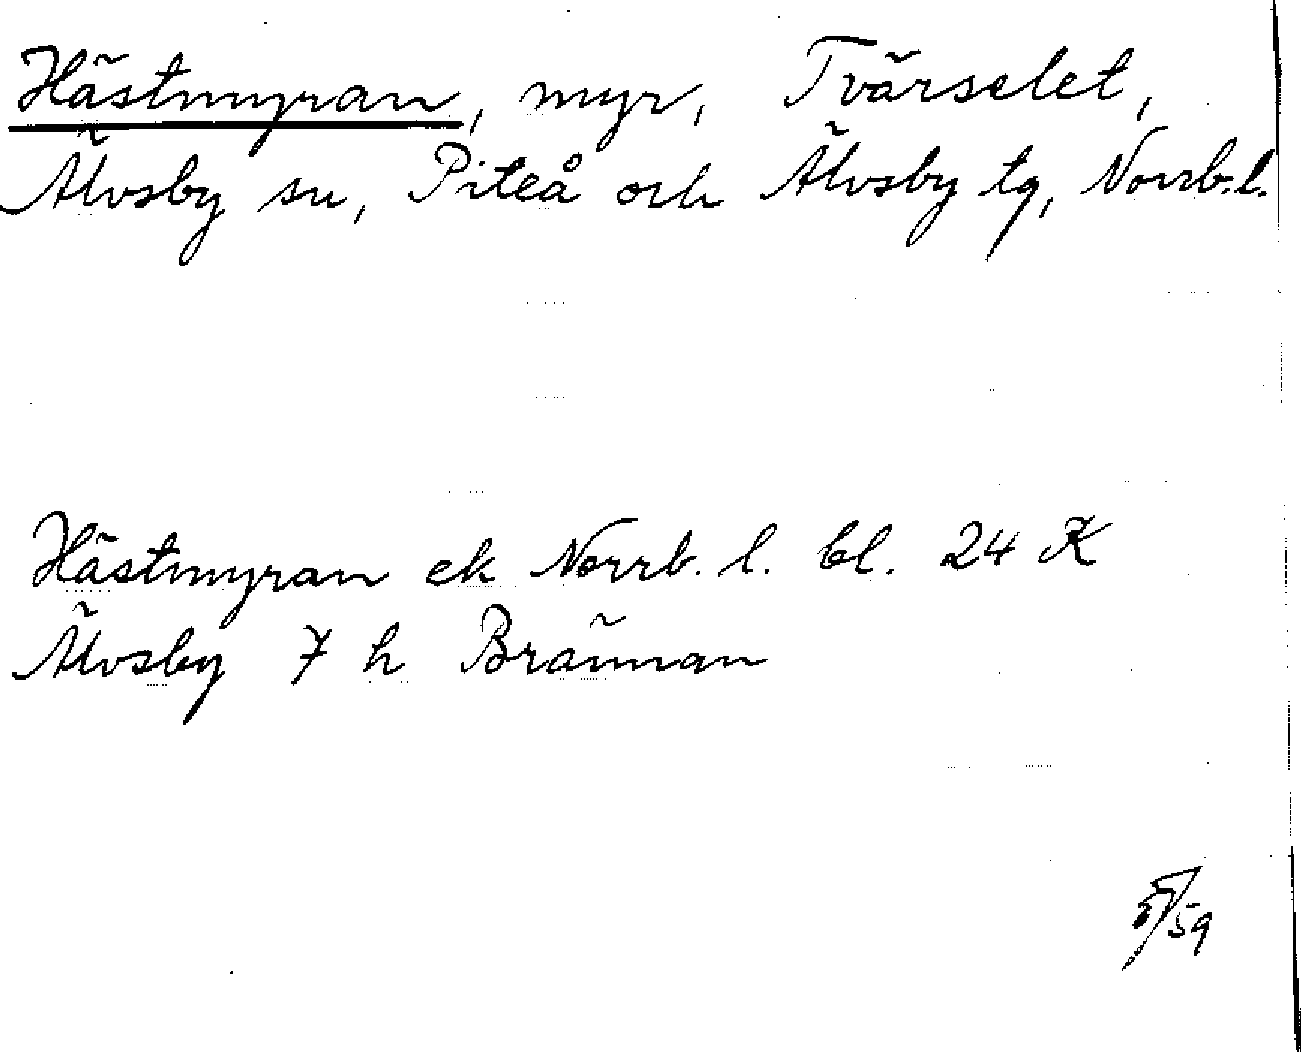 Hästmyran, myr, Tvärselet,
Älvsby sn, Piteå och Älvsby tg, Norrb.l.
Hästmyran ek Norrb. l. bl. 24 K
Älvsby 7 h Brännan
/59